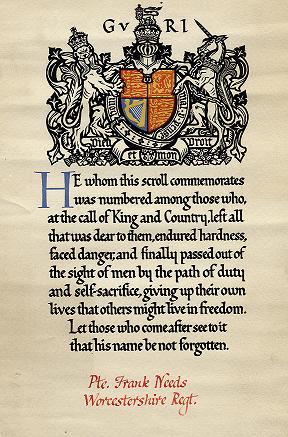 G V R I
Dieu et mon Droit
HE whom this scroll commemorates
was numbered among those who,
at the call of King and Country, left all
that was dear to them, endured hardness,
faced danger, and finally passed out of
the sight of men by the path of duty
and self-sacrifice, giving up their own
lives that others might live in freedom.
Let those who come after see to it
that his name be not forgotten.
Pte. Frank Needs
Worcestershire Regt.